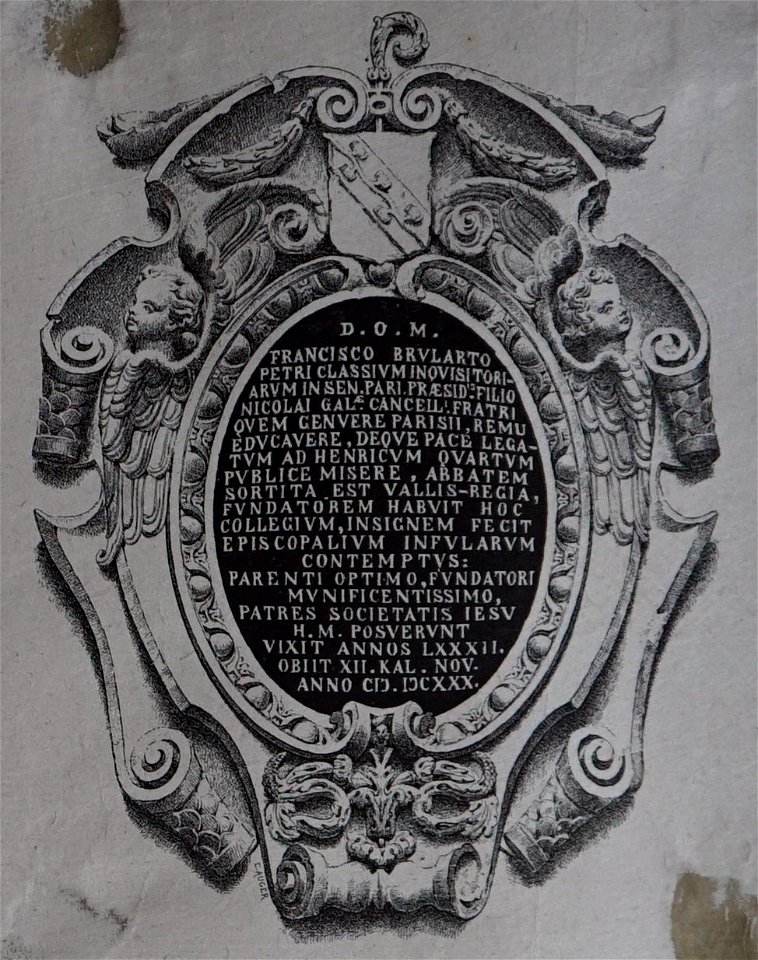 D.O.M.
FRANCISCO BRVLARTO
PETRI CLASSIVM INQVISITORI-
ARVM IN SEN. PARI. PRÆSID. FILIO
NICOLAI GAL. CANCELL. FRATRI
QVEM GENVERE PARISII, REMI
EDVCAVERE, DEQVE PACE LEGA-
TVM AD HENRICVM QVARTVM
PVBLICE MISERE, ABBATEM
SORTITA EST VALLIS-REGIA,
FVNDATOREM HABVIT HOC
COLLEGIVM, INSIGNEM FECIT
EPISCOPALIVM INFVLARVM
CONTEMPTVS:
PARENTI OPTIMO, FVNDATORI
MVNIFICENTISSIMO,
PATRES SOCIETATIS IESV
H.M. POSVERVNT
VIXIT ANNOS LXXXII.
OBIIT XII. KAL. NOV.
ANNO CIↃ. IↃCXXX.
C. AUGER